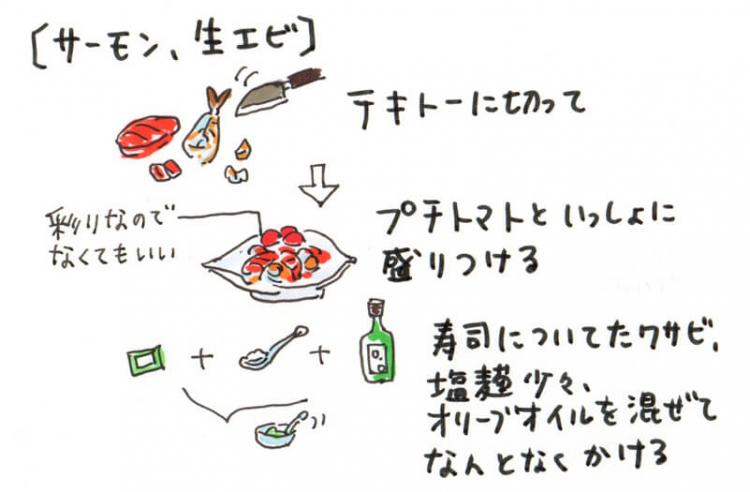 [サーモン、生エビ]
テキトーに切って
彩りなので
なくてもいい
プチトマトといっしょに
盛りつける
寿司についてたワサビ、
塩麹少々、
オリーブオイルを混ぜて
なんとなくかける